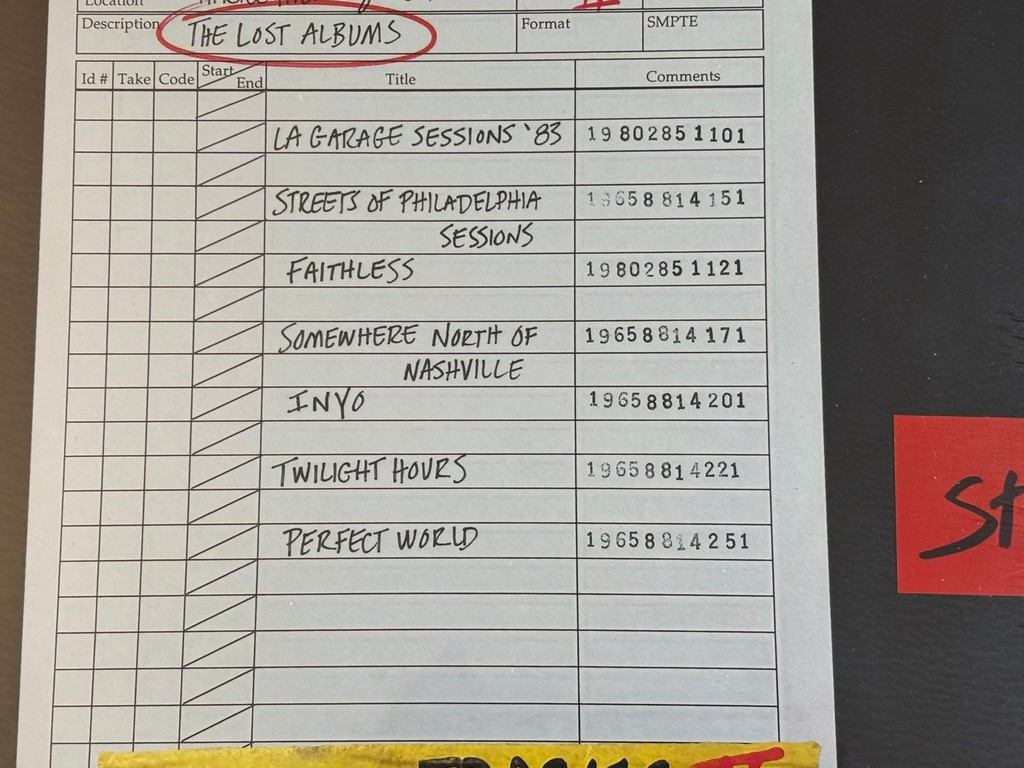 Location
Description THE LOST ALBUMS Format SMPTE
Id # Take Code Start End Title Comments
LA GARAGE SESSIONS '83 19802851101
STREETS OF PHILADELPHIA 19658814151
SESSIONS
FAITHLESS 19802851121
SOMEWHERE NORTH OF 19658814171
NASHVILLE
INYO 19658814201
TWILIGHT HOURS 19658814221
PERFECT WORLD 19658814251